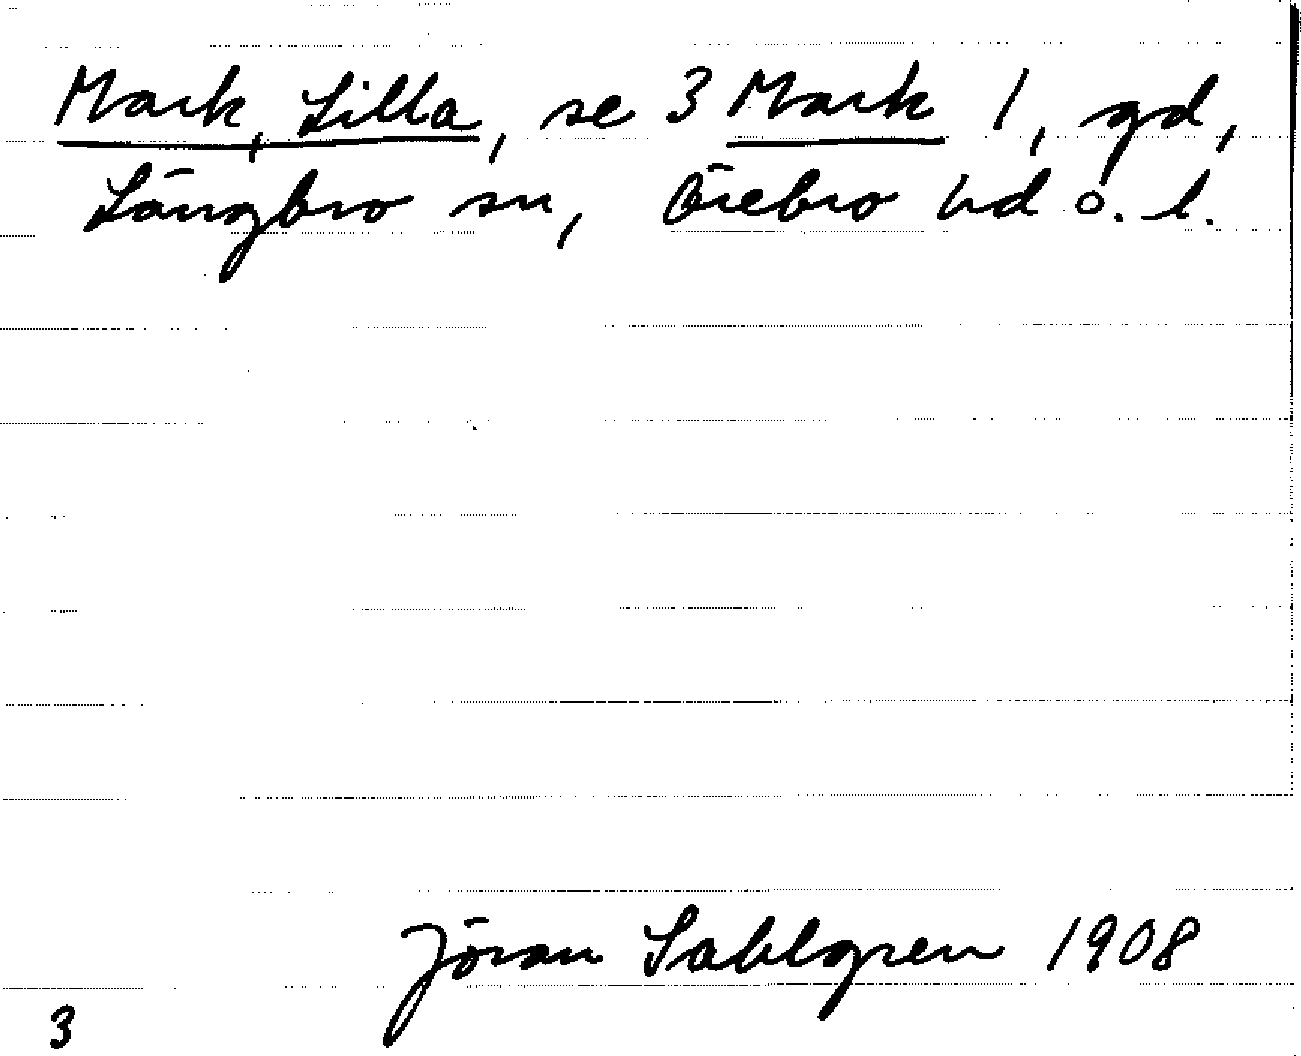 Mark, Lilla, se 3 Mark 1, gd,
Längbro sn, Örebro hd o. l.
Jöran Sahlgren 1908
3